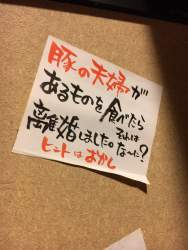 豚の夫婦が
あるものを食べたら
それは
離婚しましたの な〜に?
ヒントはおかし